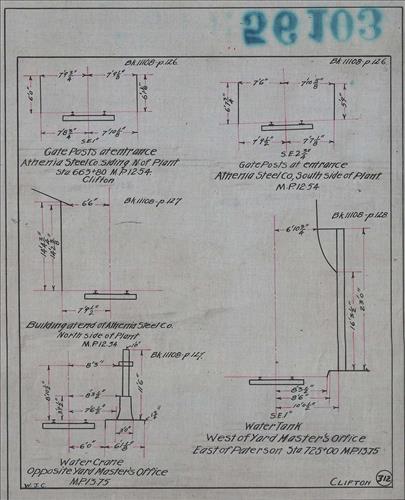 56103
Bk.1108-p.126
7'9¾"
7'9½"
6'0"
7'8¾"
7'10⅛"
S.E.1"
Gate Posts at entrance
Athenia Steel Co. siding N. of Plant
Sta 665+80 M.P.12.54
Clifton
Bk.1108-p.126
7'6"
S.E.2¾"
7'9½"
Gate Posts at entrance
Athenia Steel Co. South side of Plant.
M.P.12.54
Bk.1108-p.127
6'6"
7'9½"
Building at end of Athenia Steel Co.
North side of Plant
M.P.12.54
Bk.1108-p.128
6'10¾"
22'0"
8'6"
S.E.1"
Water Tank
West of Yard Master's Office
East of Paterson Sta 725+00 M.P.13.75
Bk.1108-p.127.
8'3"
11'6"
6'0"
Water Crane
Opposite Yard Master's Office
M.P.13.75
W.J.C.
Clifton 312